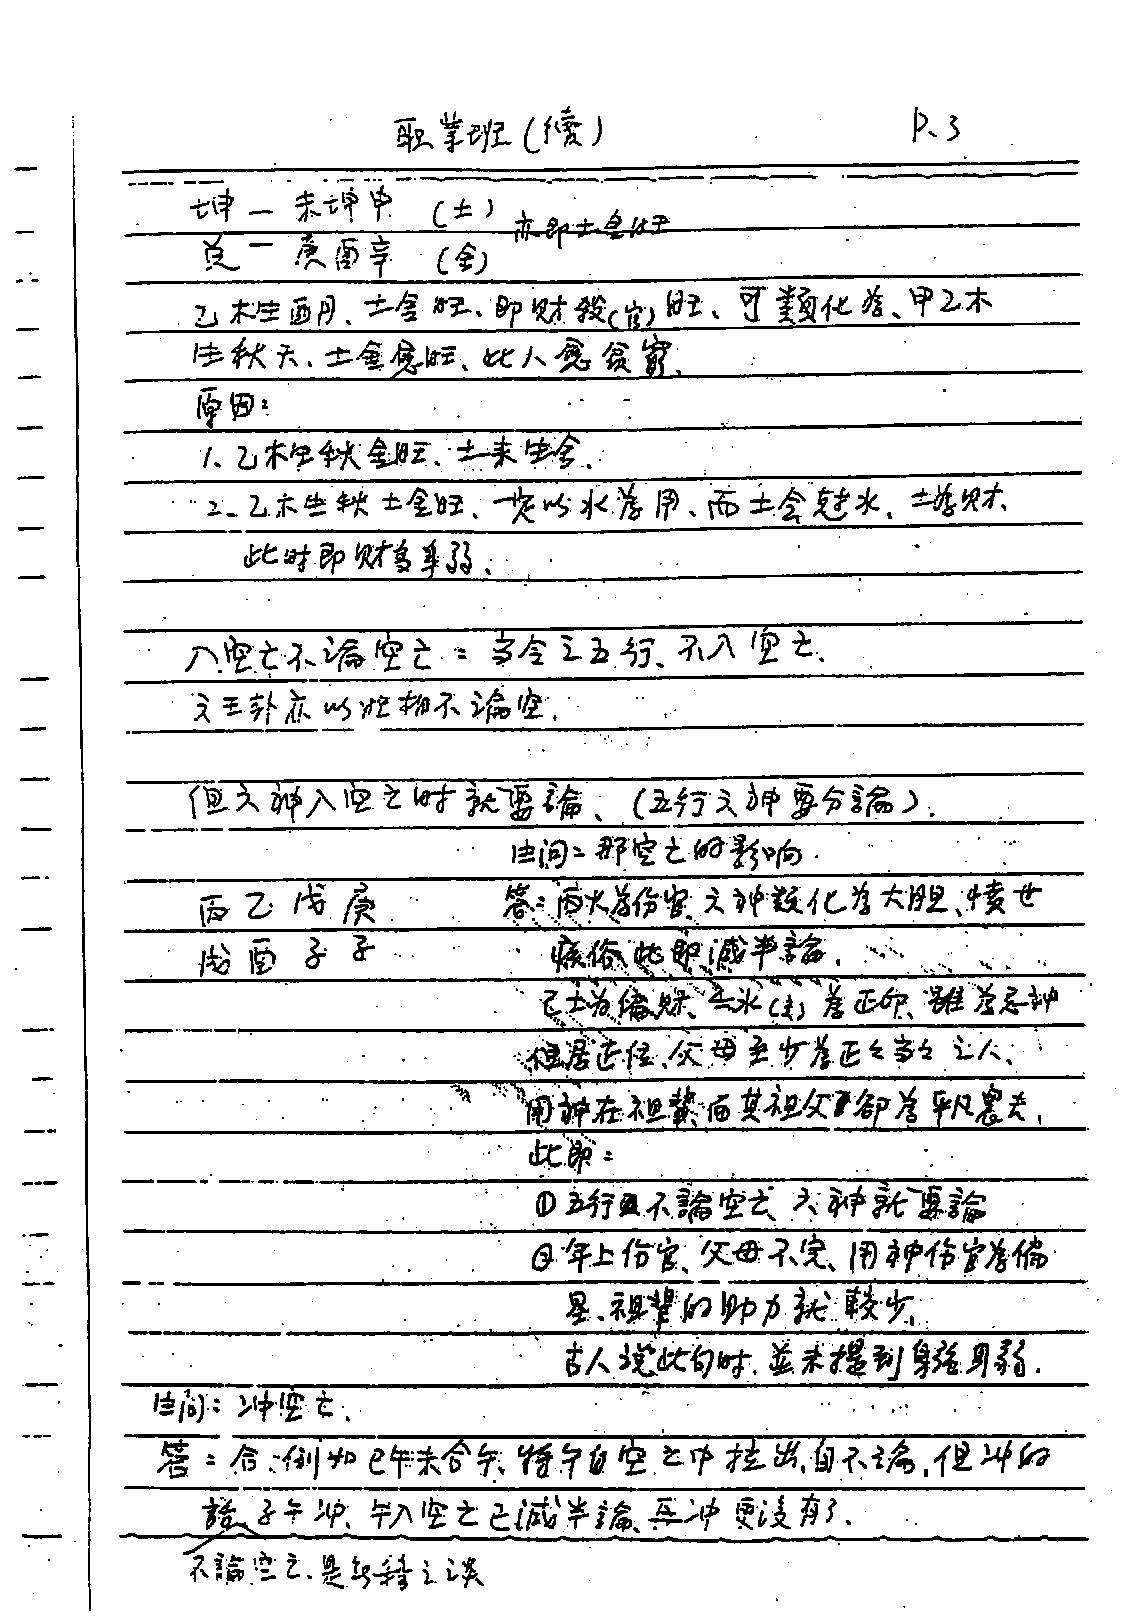 职業班(續) P.3
坤一未坤申 (土) 亦即土金旺
兌一庚酉辛 (金)
乙木生酉月、土金旺、即财殺(官)旺、可類化為、甲乙木
生秋天、土金愈旺、此人愈貧窮、
原因:
1、乙木生秋金旺、土来生金、
2、乙木生秋土金旺、一定以水為用、而土会尅水、土為财、
此时即财多身弱、
入空亡不論空亡:当令之五行、不入空亡、
文王卦亦以旺相不論空、
但六神入空亡时就要論、(五行六神要分論)、
生问:那空亡的影响、
丙乙戊庚 答:丙火為伤官、六神類化為大胆、憤世
戌酉子子 疾俗、此即減半論、
己土为偏财、壬水(癸)為正印、雖為忌神
但居正位、父母至少為正正当当之人、
用神在祖輩、而其祖父卻為平凡農夫、
此即:
①五行不論空亡、六神就要論
②年上伤官、父母不完、用神伤官為偏
星、祖輩的助力就較少、
古人說此句时、並未提到身強身弱、
生问:冲空亡、
答:合:例如巳午未合午、将午自空亡中拉出、自不論、但冲的
話、子午冲、午入空亡已減半論、再冲更沒有了、
不論空亡、是無稽之谈